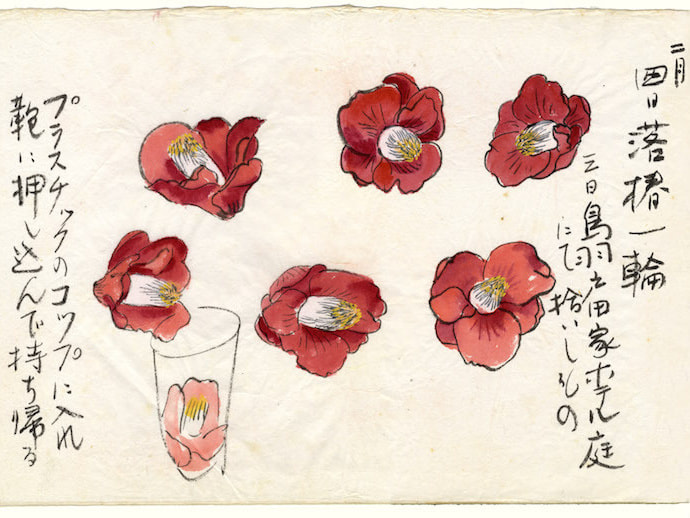 二月
四日 落椿一輪
三日 鳥羽戸田家ホテル庭
にて拾いしもの
プラスチックのコップに入れ
鞄に押し込んで持ち帰る